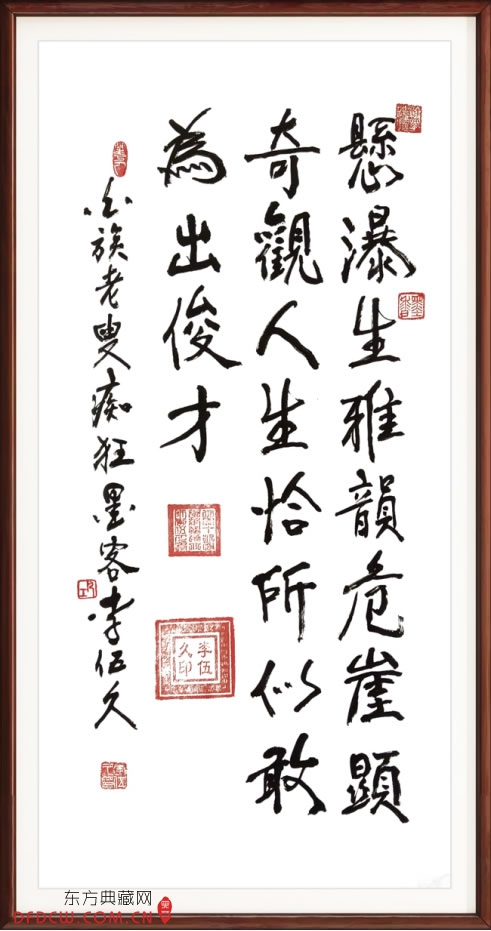 懸瀑生雅韻危崖顯
奇觀人生恰所似敢
為出俊才
白族老叟痴狂墨客李伍久
李伍
久印
东方典藏网
DFDCW.COM.CN